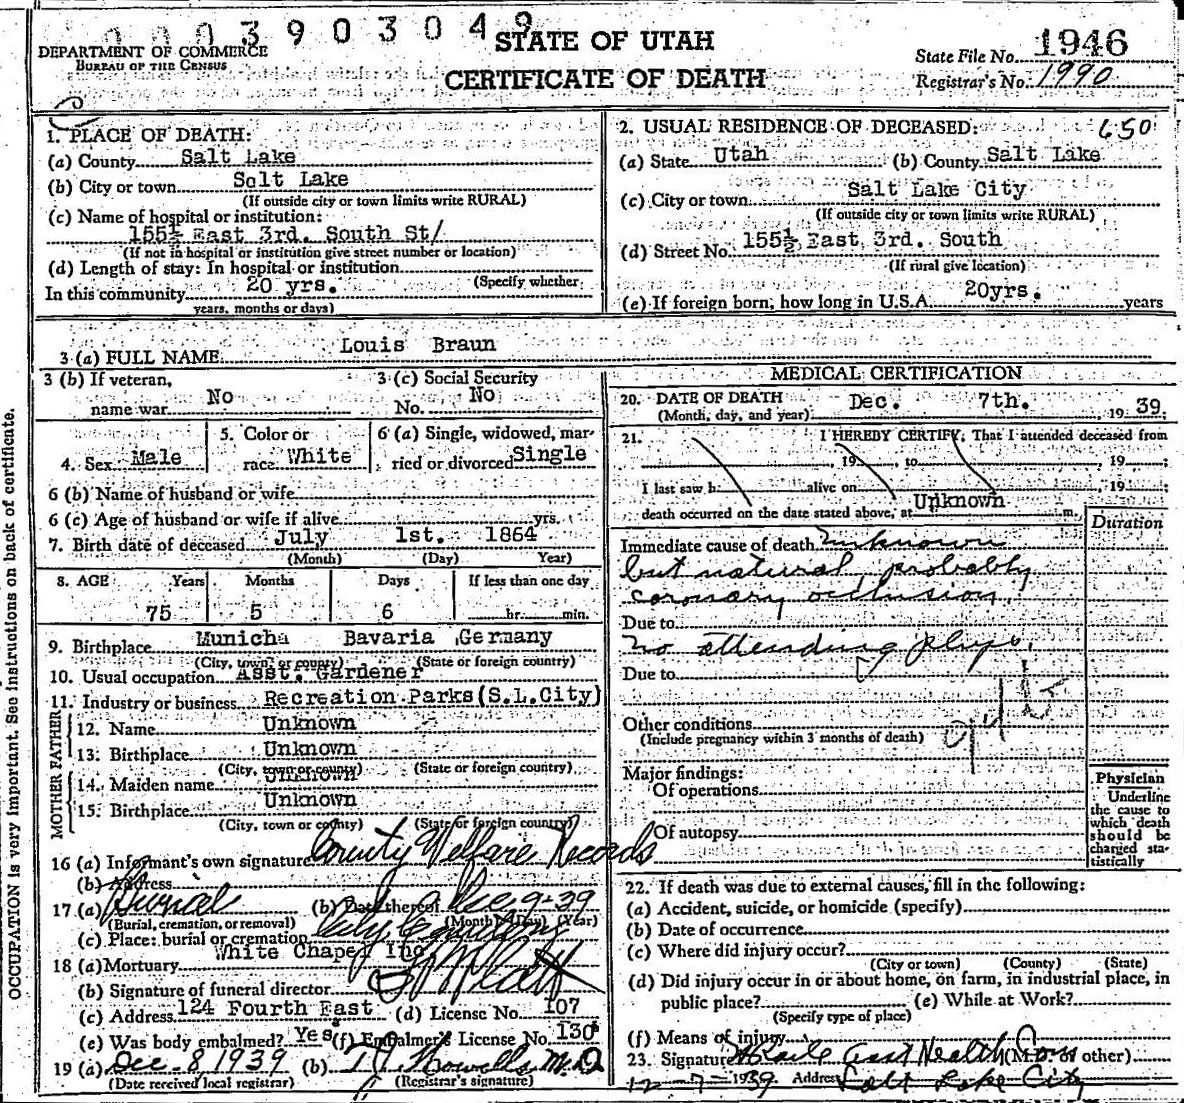 0003903049
DEPARTMENT OF COMMERCE
BUREAU OF THE CENSUS
STATE OF UTAH
CERTIFICATE OF DEATH
State File No. 1946
Registrar's No. 1990
1. PLACE OF DEATH:
(a) County Salt Lake
(b) City or town Salt Lake
(If outside city or town limits write RURAL)
(c) Name of hospital or institution:
155½ East 3rd. South St/
(If not in hospital or institution give street number or location)
(d) Length of stay: In hospital or institution
(Specify whether
In this community 20 yrs.
years, months or days)
2. USUAL RESIDENCE OF DECEASED: 650
(a) State Utah (b) County Salt Lake
(c) City or town Salt Lake City
(If outside city or town limits write RURAL)
(d) Street No. 155½ East 3rd. South
(If rural give location)
(e) If foreign born, how long in U.S.A. 20yrs. years
3 (a) FULL NAME Louis Braun
3 (b) If veteran, name war No
3 (c) Social Security No. No
4. Sex Male
5. Color or race White
6 (a) Single, widowed, married or divorced Single
6 (b) Name of husband or wife
6 (c) Age of husband or wife if alive yrs.
7. Birth date of deceased July 1st. 1864
(Month) (Day) Year)
8. AGE Years Months Days If less than one day
75 5 6 hr. min.
9. Birthplace Municha Bavaria Germany
(City, town, or county) (State or foreign country)
10. Usual occupation Asst. Gardener
11. Industry or business Recreation Parks(S.L.City)
FATHER
12. Name Unknown
13. Birthplace Unknown
(City, town or county) (State or foreign country)
MOTHER
14. Maiden name Unknown
15. Birthplace Unknown
(City, town or county) (State or foreign country)
16 (a) Informant's own signature County Welfare Records
(b) Address
17 (a) Burial (b) Date thereof Dec 9-39
(Burial, cremation, or removal) (Month) (Day) (Year)
(c) Place: burial or cremation City Cemetery
18 (a) Mortuary White Chapel Inc
(b) Signature of funeral director
(c) Address 124 Fourth East (d) License No. 107
(e) Was body embalmed? Yes (f) Embalmer's License No. 130
19 (a) Dec. 8, 1939 (b) Howells, M.D.
(Date received local registrar) (Registrar's signature)
MEDICAL CERTIFICATION
20. DATE OF DEATH Dec. 7th. 1939;
(Month, day, and year)
21. I HEREBY CERTIFY, That I attended deceased from
, 19 , to , 19 ;
I last saw h alive on , 19 ;
death occurred on the date stated above, at Unknown m.
Duration
Immediate cause of death Unknown
but natural, probably
coronary occlusion.
Due to
No attending phys.
Due to
Other conditions
(Include pregnancy within 3 months of death)
Major findings:
Of operations
Of autopsy
Physician
Underline
the cause to
which death
should be
charged sta-
tistically
22. If death was due to external causes, fill in the following:
(a) Accident, suicide, or homicide (specify)
(b) Date of occurrence
(c) Where did injury occur?
(City or town) (County) (State)
(d) Did injury occur in or about home, on farm, in industrial place, in
public place? (e) While at Work?
(Specify type of place)
(f) Means of injury
23. Signature Asst Health Com (M.D. or other)
12-7-1939 Address Salt Lake City
OCCUPATION is very important. See instructions on back of certificate.